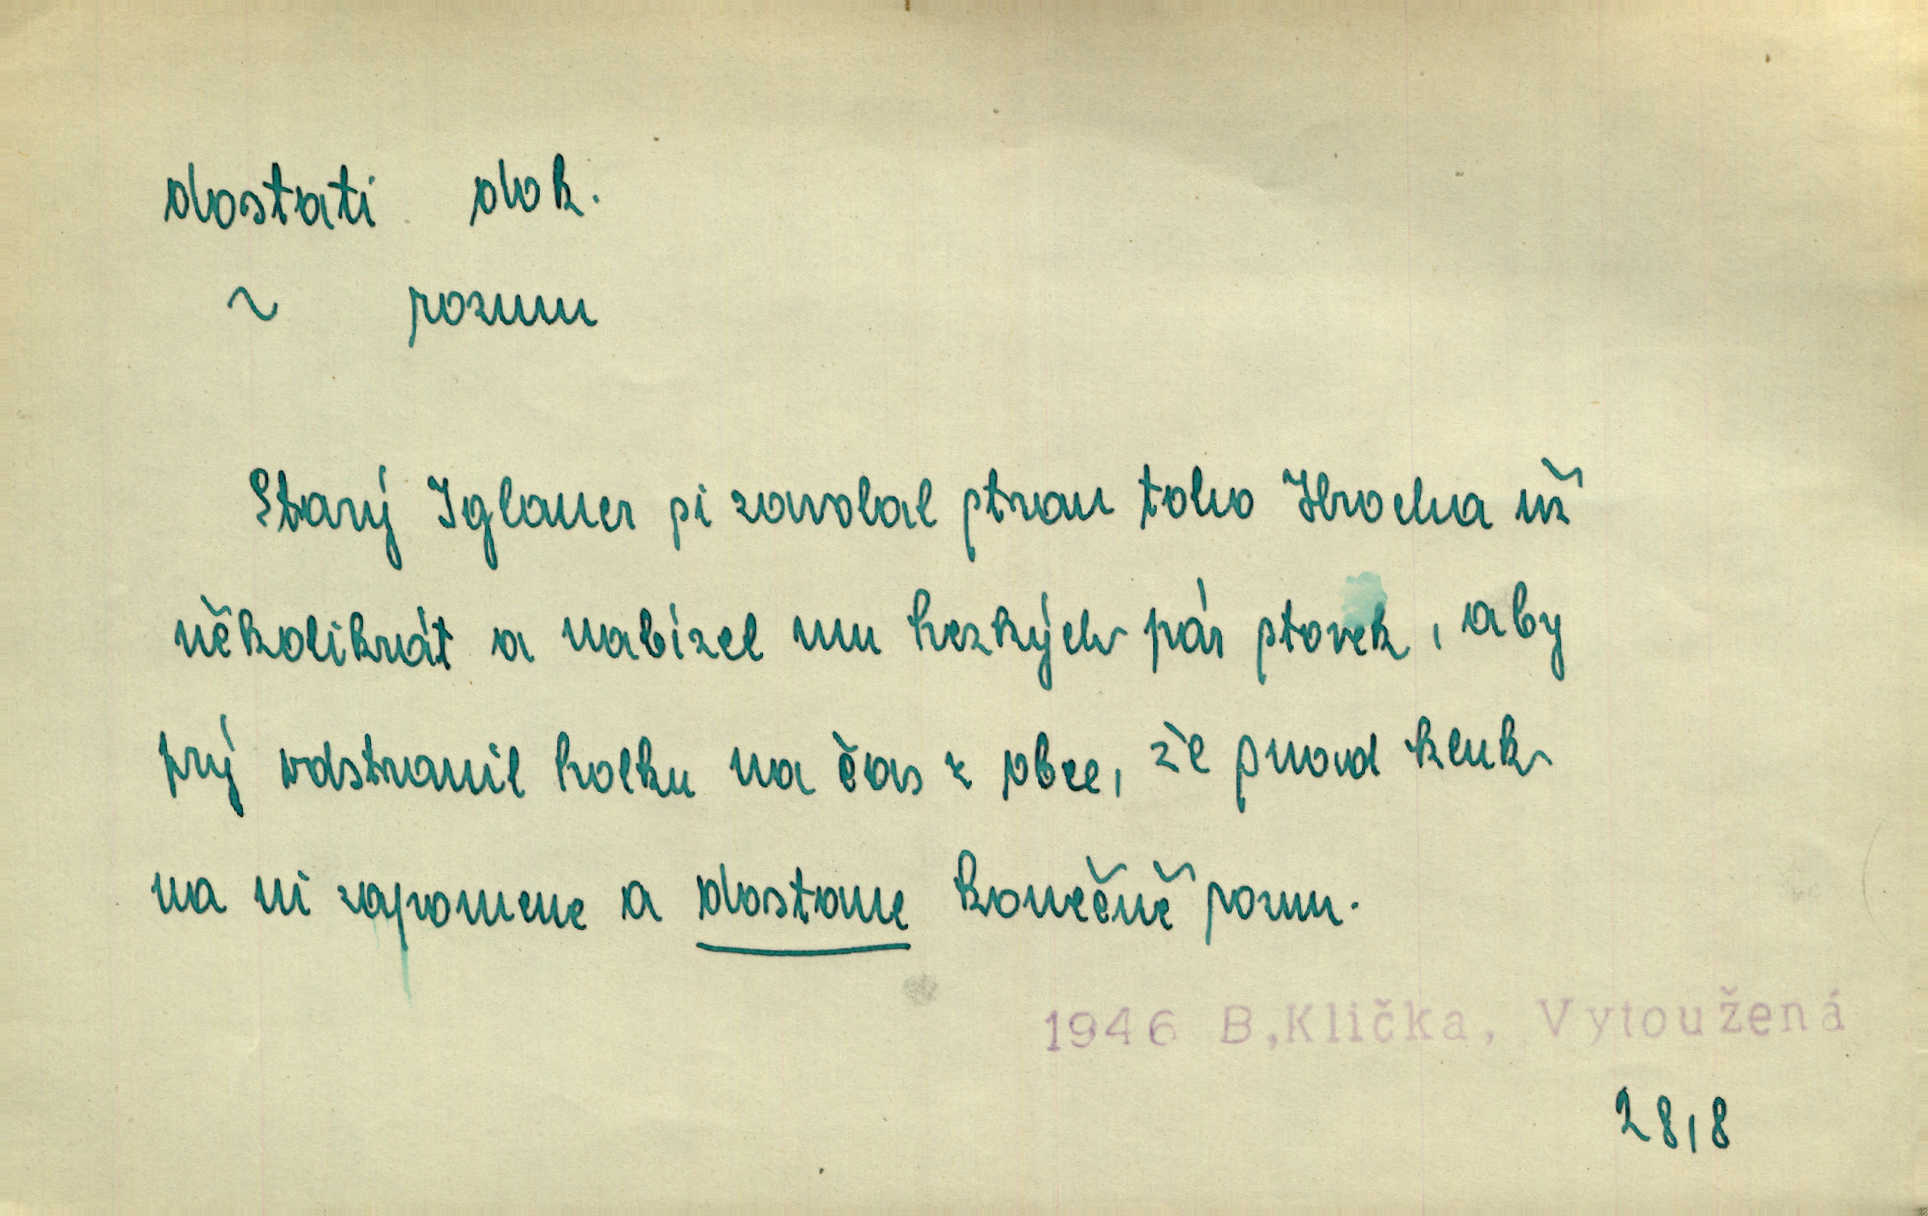 dostati dok.
~ rozum
Starý Iglauer si zavolal stran toho Hrocha už
několikrát a nabízel mu hezkých pár stovek, aby
prý odstranil holku na čas z obce, že snad kluk
na ni zapomene a dostane konečně rozum.
1946 B,Klička, Vytoužená
28,8